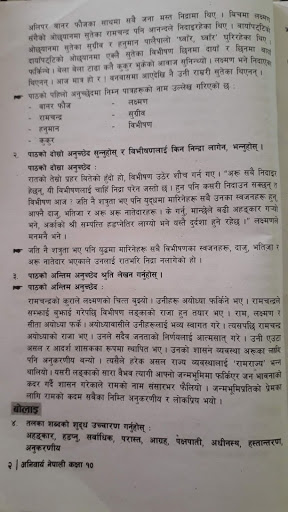 अलिपर बानर फौजका साथमा सबै जना मस्त निद्रामा थिए । बिचमा लक्ष्मण
सँगैको ओछ्यानमा सुतेका रामचन्द्र पनि आनन्दले निदाइरहेका थिए । दायाँपट्टिको
ओछ्यानमा सुतेका सुग्रीव र हनुमान पालैपालो 'घ्वाँर, घ्वाँर' घुरिरहेका थिए ।
बायाँपट्टिको ओछ्यानमा एक्लै सुतेका विभीषण छिनमा दायाँ र छिनमा बायाँ
फर्किन्थे । बेला बेला टाढा कतै कुकुर भुकेको आवाज सुनिन्थ्यो । लक्ष्मण भने निदाएका
थिएनन् । आज मात्र हो र । वनवासमा आएदेखि नै उनी राम्ररी सुतेका थिएनन् ।
पाठको पहिलो अनुच्छेदमा निम्न पात्रहरूको नाम उल्लेख गरिएको छ :
- बानर फौज - लक्ष्मण
- रामचन्द्र - सुग्रीव
- हनुमान - विभीषण
- कुकुर
२. पाठको दोस्रो अनुच्छेद सुन्नुहोस् र विभीषणलाई किन निन्द्रा लागेन, भन्नुहोस् ।
पाठको दोस्रो अनुच्छेद :
रातको तेस्रो प्रहर बितेको हुँदो हो, विभीषण उठेर शौच गर्न गए । "अरू सबै निदाइर
हेछन्, यी विभीषणलाई चाहिँ निद्रा परेन जस्तो छ । हुन पनि कसरी निदाउन सक्छन् त
विभीषण आज ! जति नै शत्रुता भए पनि युद्धमा मारिनेहरू सबै उनका स्वजनहरू हुन्,
आफ्नै दाजु, भतिजा र अरू अरू नातेदारहरू । के गर्नु, मान्छेले बढी अहङ्कार गर्‍यो
भने, अर्काको श्री सम्पत्ति हडप्नेतिर लाग्यो भने यस्तै दुर्दशा हुने रहेछ ।" लक्ष्मणले
मनमनै भने ।
जति नै शत्रुता भए पनि युद्धमा मारिनेहरू सबै विभीषणका स्वजनहरू, दाजु, भतिजा र
अरू नातेदार भएकाले उनलाई रातभरि निद्रा नलागेको हो ।
३. पाठको अन्तिम अनुच्छेद श्रुति लेखन गर्नुहोस् ।
पाठको अन्तिम अनुच्छेद :
रामचन्द्रको कुराले लक्ष्मणको चित्त बुझ्यो । उनीहरू अयोध्या फर्किने भए । रामचन्द्रले
सम्झाई बुझाई गरेपछि विभीषण लङ्काको राजा हुन तयार भए । राम, लक्ष्मण र
सीता अयोध्या फर्के । अयोध्यावासीले उनीहरूलाई भव्य स्वागत गरे । त्यसपछि रामचन्द्र
अयोध्याको राजा भए । उनले सदैव जनताको निर्णयलाई आत्मसात् गरे । उनी एउटा
असल र आदर्श शासकका रूपमा स्थापित भए । उनको शासन व्यवस्था अरूका लागि
पनि अनुकरणीय बन्यो । त्यसैले हरेक असल राज्य व्यवस्थालाई 'रामराज्य' भन्न
थालियो । यसरी लङ्काको सारा वैभव त्यागी आफ्नो जन्मभूमिमा फर्किएर जन भावनाको
कदर गर्दै शासन गरेकाले रामको नाम संसारभर फैलियो । जन्मभूमिप्रतिको प्रेमका
लागि रामको कदम सबैका निम्ति अनुकरणीय र लोकप्रिय भयो ।
बोलाइ
४. तलका शब्दको शुद्ध उच्चारण गर्नुहोस् :
अहङ्कार, हडप्नु, सर्वाधिक, परास्त, आग्रह, पेक्षपाती, अधीनस्थ, हस्तान्तरण,
अनुकरणीय
२ | अनिवार्य नेपाली कक्षा १०